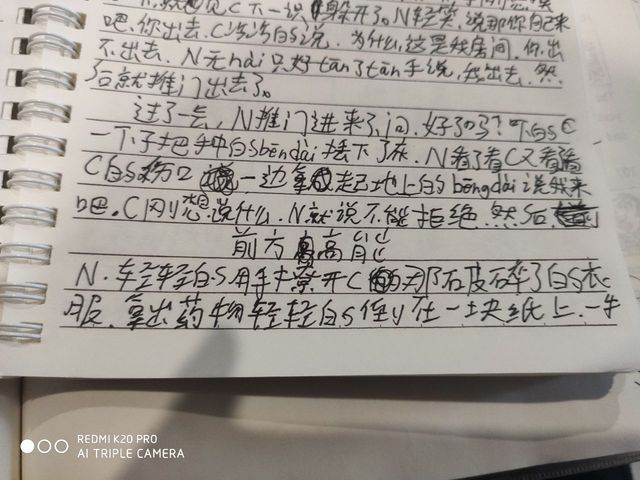 就见C下一识 躲开了。N轻笑,说那你自己来
吧,你出去。C冷冷白S说.为什么,这是我房间.你出
不出去.N无nài只好tān了tān手说,我出去.然
后就推门出去了。
过了一会,N推门进来了,问.好了吗?吓白S C
一下子把手中白S bēngdài 丢下了床.N看了看C又看看
C白S伤口 一边拿起地上白S bēngdài 说我来
吧.C刚想说什么.N就说不能拒绝.然后
前方高能
N.轻轻白S用手 开C 那石皮石卒了白S衣
服.拿出药物轻轻白S倒在一块纸上.一牛
REDMI K20 PRO
AI TRIPLE CAMERA